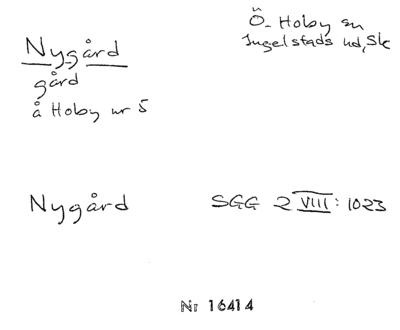 Nygård
gård
å Hoby nr 5
Ö. Hoby sn
Ingelstads hd, Sk
Nygård
SGG 2 VIII: 1023
Nr 16414